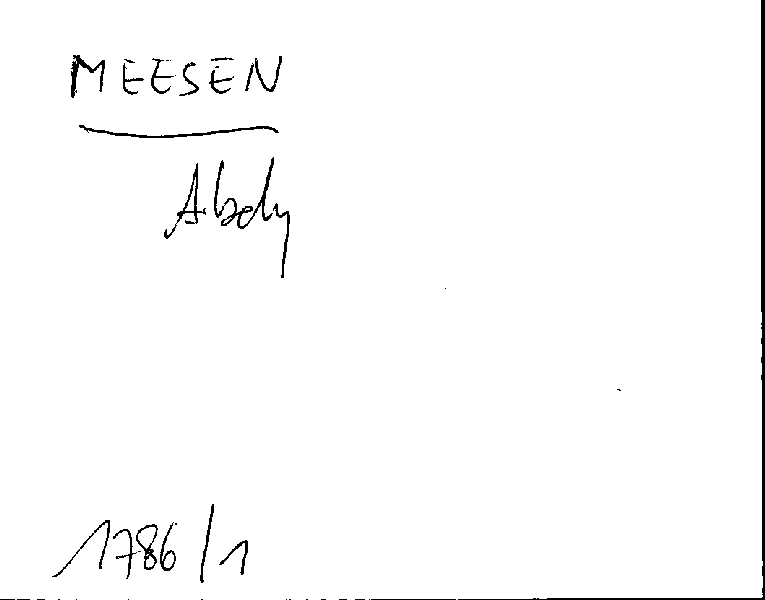 MEESEN
Abdy
1786/1